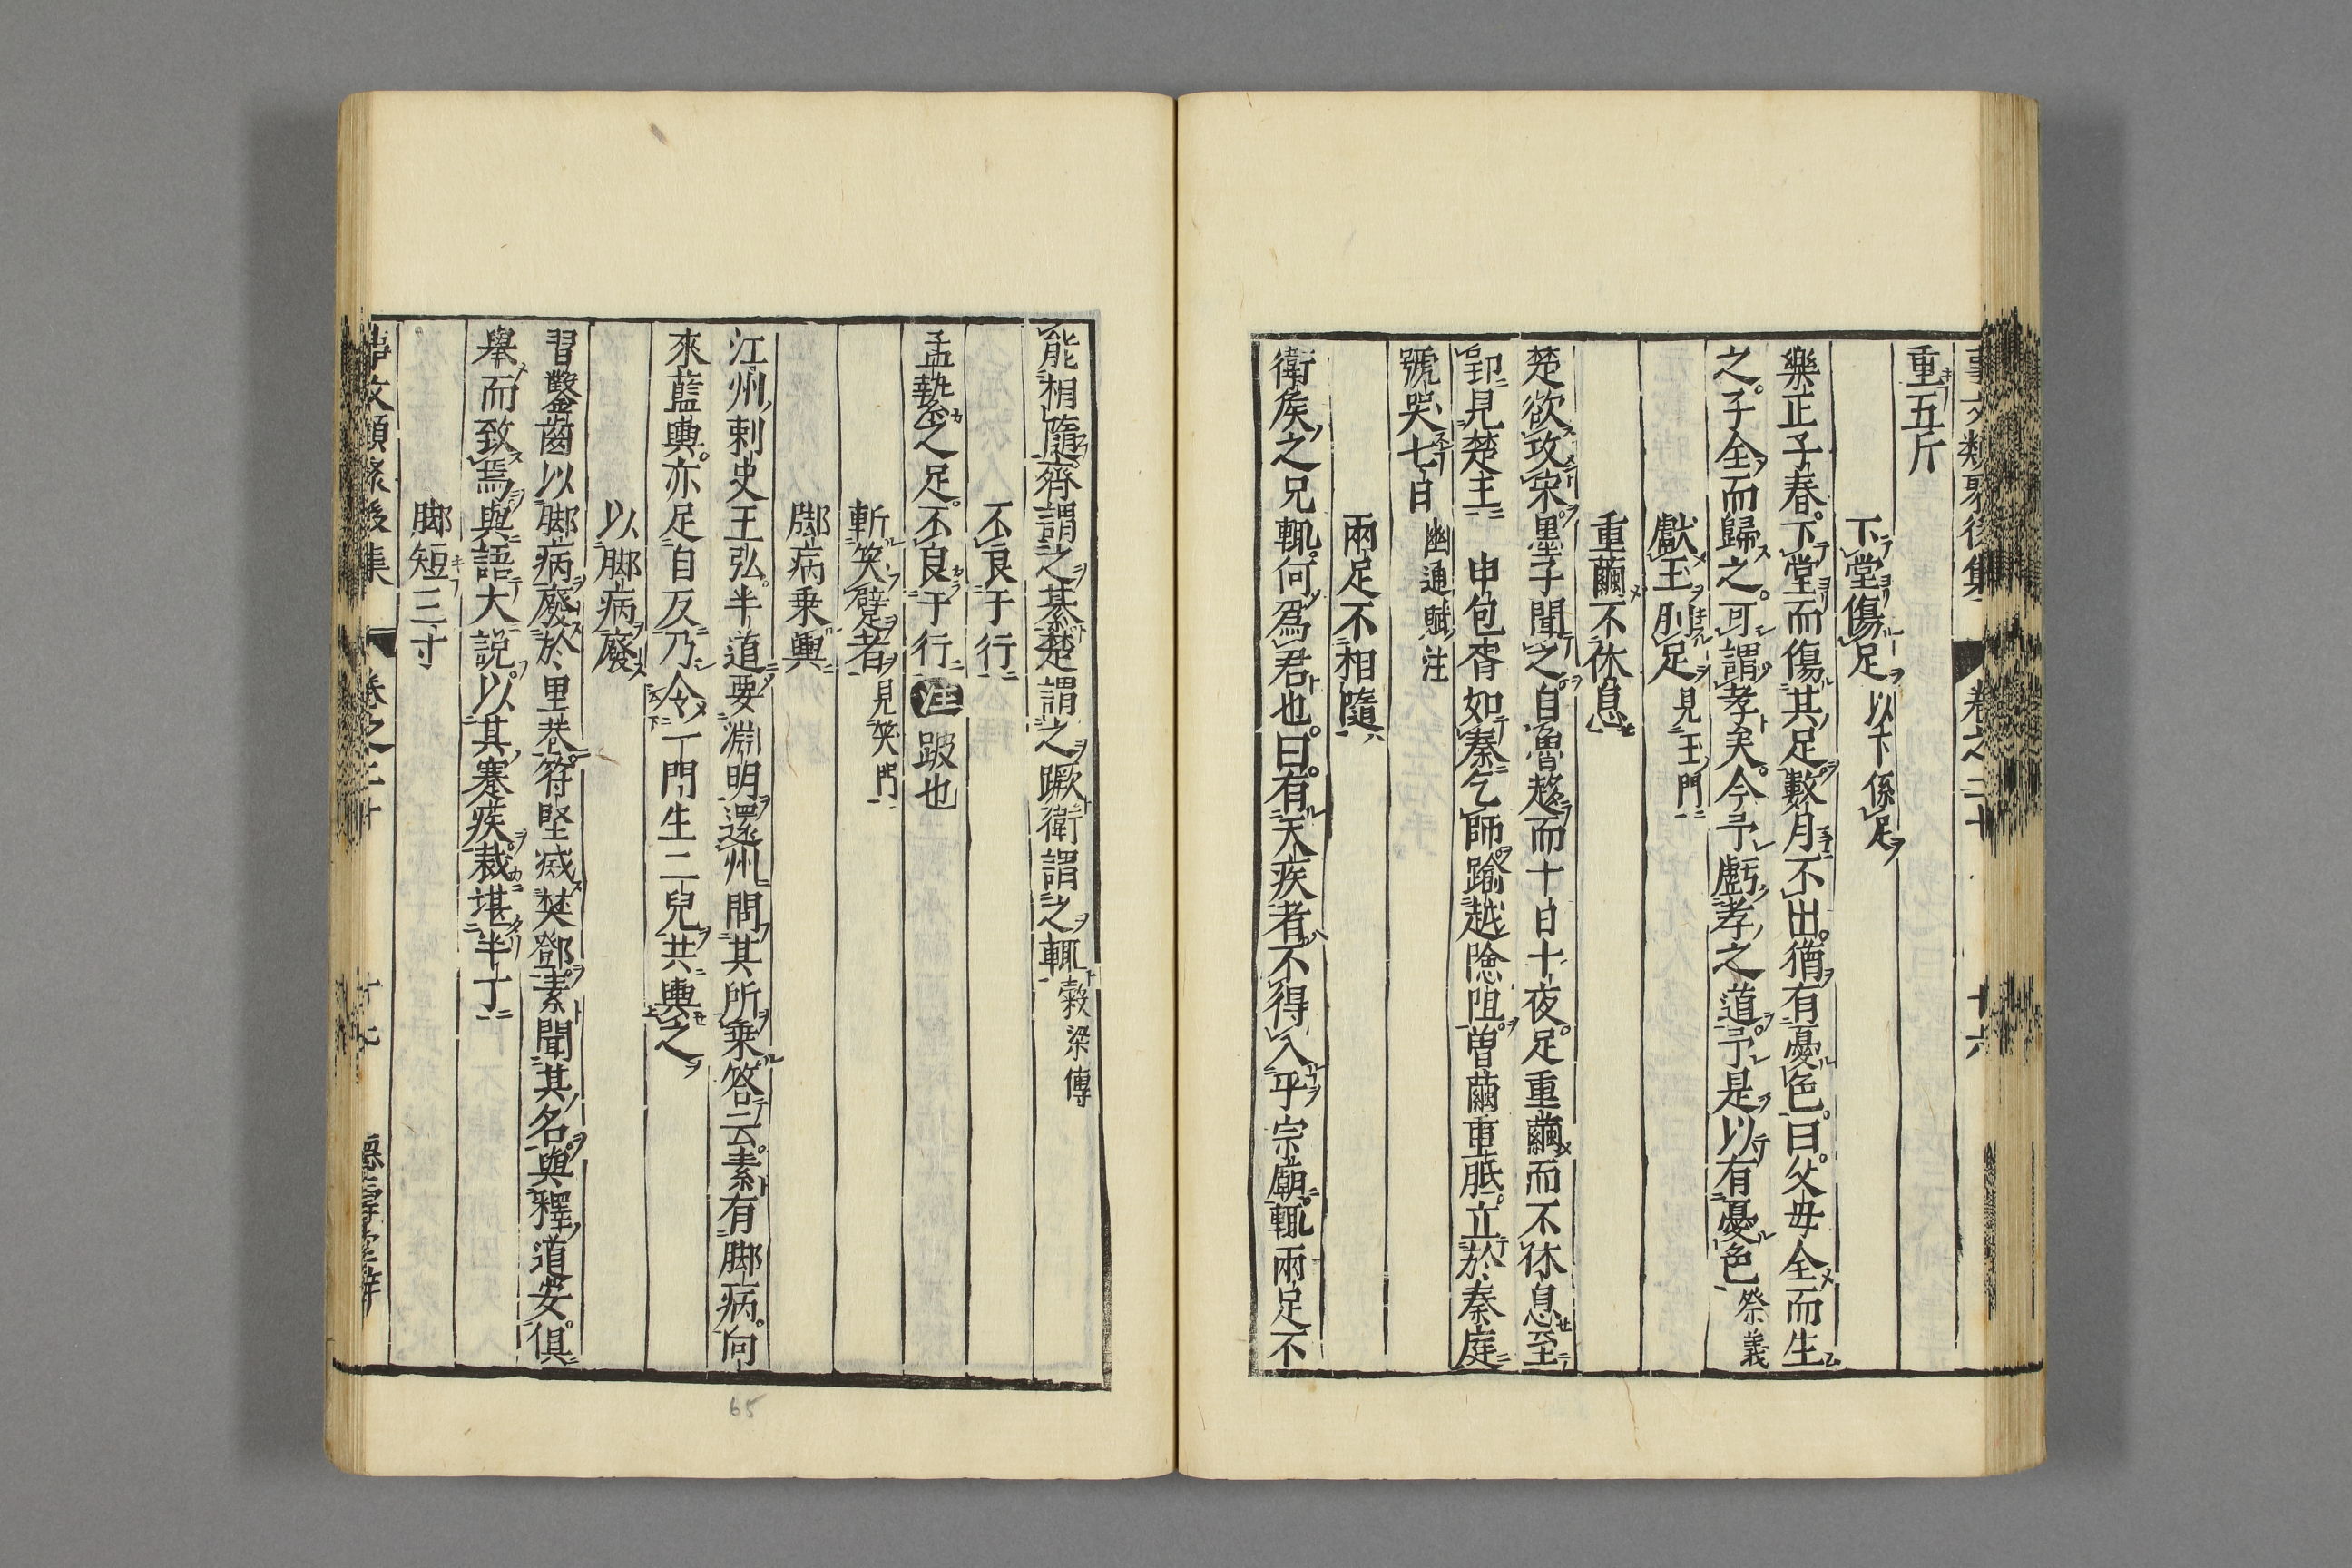 事文類聚後集 卷之二十 十六
重五斤
下堂傷足 以下係足
樂正子春下堂而傷其足數月不出猶有憂色曰父毋全而生
之子全而歸之可謂孝矣今予虧孝之道予是以有憂色 祭義
獻玉刖足 見玉門
重繭不休息
楚欲攻宋墨子聞之自魯趍而十日十夜足重繭而不休息至
郢見楚王 申包胥如秦乞師踰越險阻曽繭重胝立於秦庭
號哭七日 幽通賦注
兩足不相隨
衛侯之兄輒何爲君也曰有天疾者不得入乎宗廟輒兩足不
能相隨齊謂之綦楚謂之蹶衛謂之輒 穀梁傳
不良于行
孟縶之足不良于行 注 跛也
斬笑躄者 見笑門
脚病乗輿
江州刺史王弘半道要淵明還州問其所乗答云素有脚病向
來藍輿亦足自反乃令一門生二兒共輿之
以脚病廢
習鑿齒以脚病廢於里巷符堅㓕樊鄧素聞其名與釋道安俱
舉而致焉與語大説以其蹇疾裁堪半丁
脚短三寸
事文類聚後集 卷之二十 十七